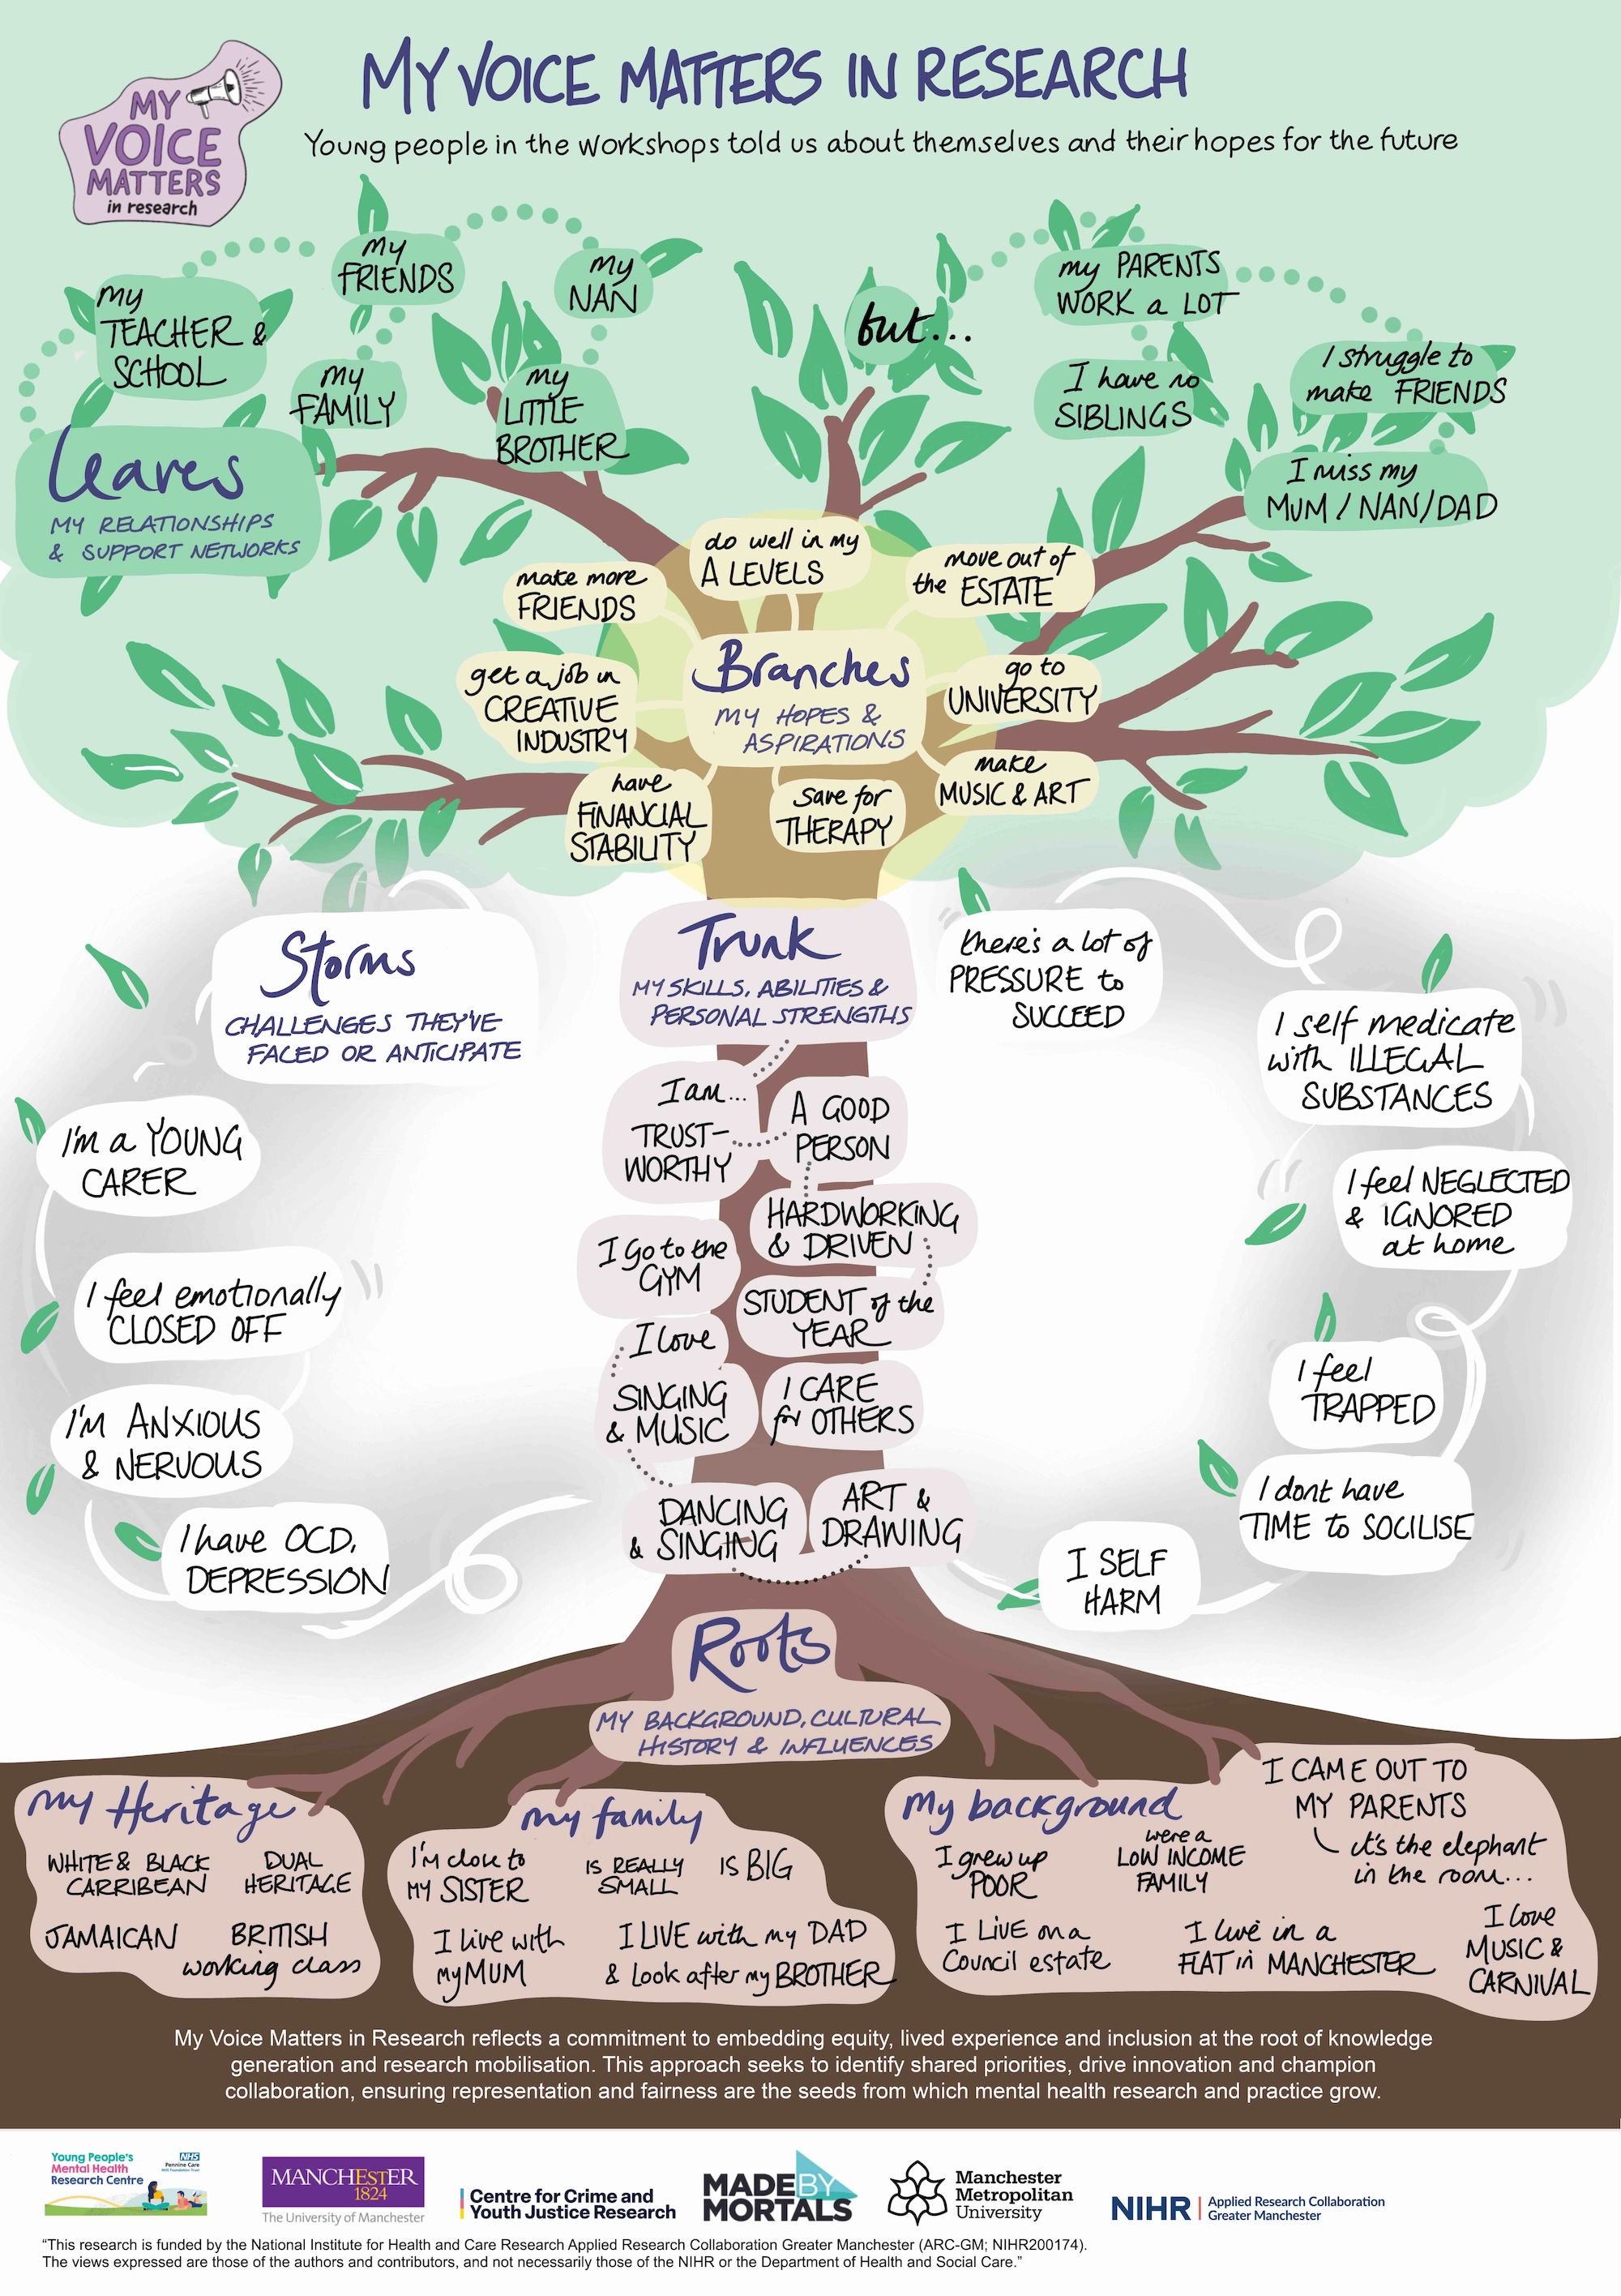 MY VOICE MATTERS IN RESEARCH
Young people in the workshops told us about themselves and their hopes for the future
MY
VOICE
MATTERS
in research
my
TEACHER &
SCHOOL
my
FRIENDS
my
NAN
my
FAMILY
my
LITTLE
BROTHER
but...
my PARENTS
WORK a LOT
I have no
SIBLINGS
I struggle to
make FRIENDS
I miss my
MUM / NAN / DAD
Leaves
MY RELATIONSHIPS
& SUPPORT NETWORKS
do well in my
A LEVELS
make more
FRIENDS
move out of
the ESTATE
get a job in
CREATIVE
INDUSTRY
Branches
MY HOPES &
ASPIRATIONS
go to
UNIVERSITY
have
FINANCIAL
STABILITY
save for
THERAPY
make
MUSIC & ART
Storms
CHALLENGES THEY'VE
FACED OR ANTICIPATE
I'm a YOUNG
CARER
I feel emotionally
CLOSED OFF
I'M ANXIOUS
& NERVOUS
I have OCD,
DEPRESSION
Trunk
MY SKILLS, ABILITIES &
PERSONAL STRENGTHS
I am...
TRUST-
WORTHY
A GOOD
PERSON
HARDWORKING
& DRIVEN
I Go to the
GYM
STUDENT of the
YEAR
I love
SINGING
& MUSIC
I CARE
for OTHERS
DANCING
& SINGING
ART &
DRAWING
there's a lot of
PRESSURE to
SUCCEED
I self medicate
with ILLEGAL
SUBSTANCES
I feel NEGLECTED
& IGNORED
at home
I feel
TRAPPED
I dont have
TIME to SOCILISE
I SELF
HARM
Roots
MY BACKGROUND, CULTURAL
HISTORY & INFLUENCES
my Heritage
WHITE & BLACK
CARRIBEAN
DUAL
HERITAGE
JAMAICAN
BRITISH
working class
my family
I'M close to
MY SISTER
IS REALLY
SMALL
IS BIG
I live with
my MUM
I LIVE with my DAD
& Look after my BROTHER
My background
I grew up
POOR
were a
LOW INCOME
FAMILY
I CAME OUT TO
MY PARENTS
it's the elephant
in the room...
I LIVE on a
Council estate
I live in a
FLAT in MANCHESTER
I love
MUSIC &
CARNIVAL
My Voice Matters in Research reflects a commitment to embedding equity, lived experience and inclusion at the root of knowledge
generation and research mobilisation. This approach seeks to identify shared priorities, drive innovation and champion
collaboration, ensuring representation and fairness are the seeds from which mental health research and practice grow.
Young People's
Mental Health
Research Centre
NHS
Pennine Care
NHS Foundation Trust
MANCHESTER
1824
The University of Manchester
Centre for Crime and
Youth Justice Research
MADE BY
MORTALS
Manchester
Metropolitan
University
NIHR
Applied Research Collaboration
Greater Manchester
“This research is funded by the National Institute for Health and Care Research Applied Research Collaboration Greater Manchester (ARC-GM; NIHR200174).
The views expressed are those of the authors and contributors, and not necessarily those of the NIHR or the Department of Health and Social Care.”